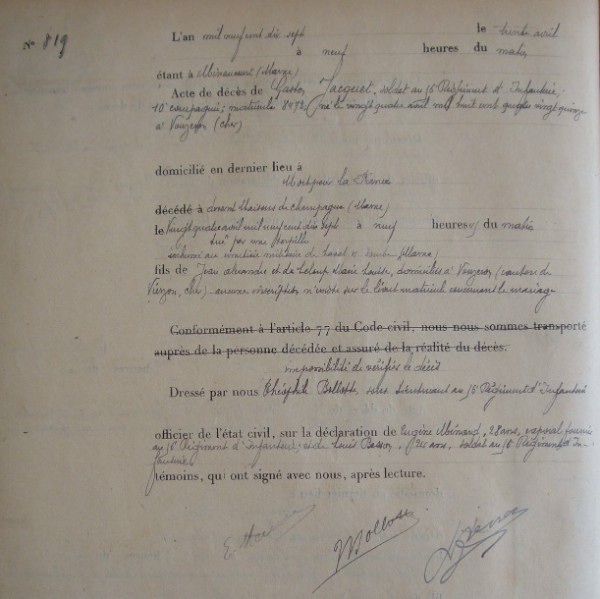 N° 819
L'an mil neuf cent dix sept le trente avril
à neuf heures du matin
étant à (Marne)
Acte de décès de Gaston Jacquet, soldat au 16e Régiment d'Infanterie,
10e compagnie; matricule né le vingt quatre avril mil huit cent quatre vingt quinze
à Vouzeron (cher)
domicilié en dernier lieu à
Mort pour la France
décédé à devant (Marne)
le vingt quatre avril mil neuf cent dix sept à neuf heures du matin
tué par une torpille
inhumé au cimetière militaire de (Marne)
fils de Jean Alexandre et de Leloup Marie Louise, domiciliés à Vouzeron (canton de
Vierzon, cher) aucune inscription n'existe sur le livret matricule concernant le mariage
Conformément à l'article 77 du Code civil, nous nous sommes transporté
auprès de la personne décédée et assuré de la réalité du décès.
impossibilité de vérifier le décès
Dressé par nous Théophile sous Lieutenant au 16e Régiment d'Infanterie
officier de l'état civil, sur la déclaration de Eugène 28 ans, caporal fourrier
au 16e Régiment d'Infanterie; et de Louis ans, soldat au 16e Régiment d'In-
fanterie
témoins, qui ont signé avec nous, après lecture.